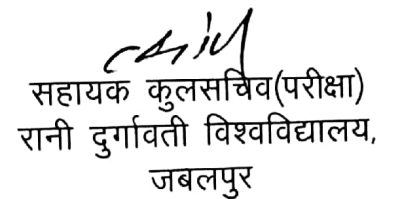 सहायक कुलसचिव(परीक्षा)
रानी दुर्गावती विश्वविद्यालय,
जबलपुर